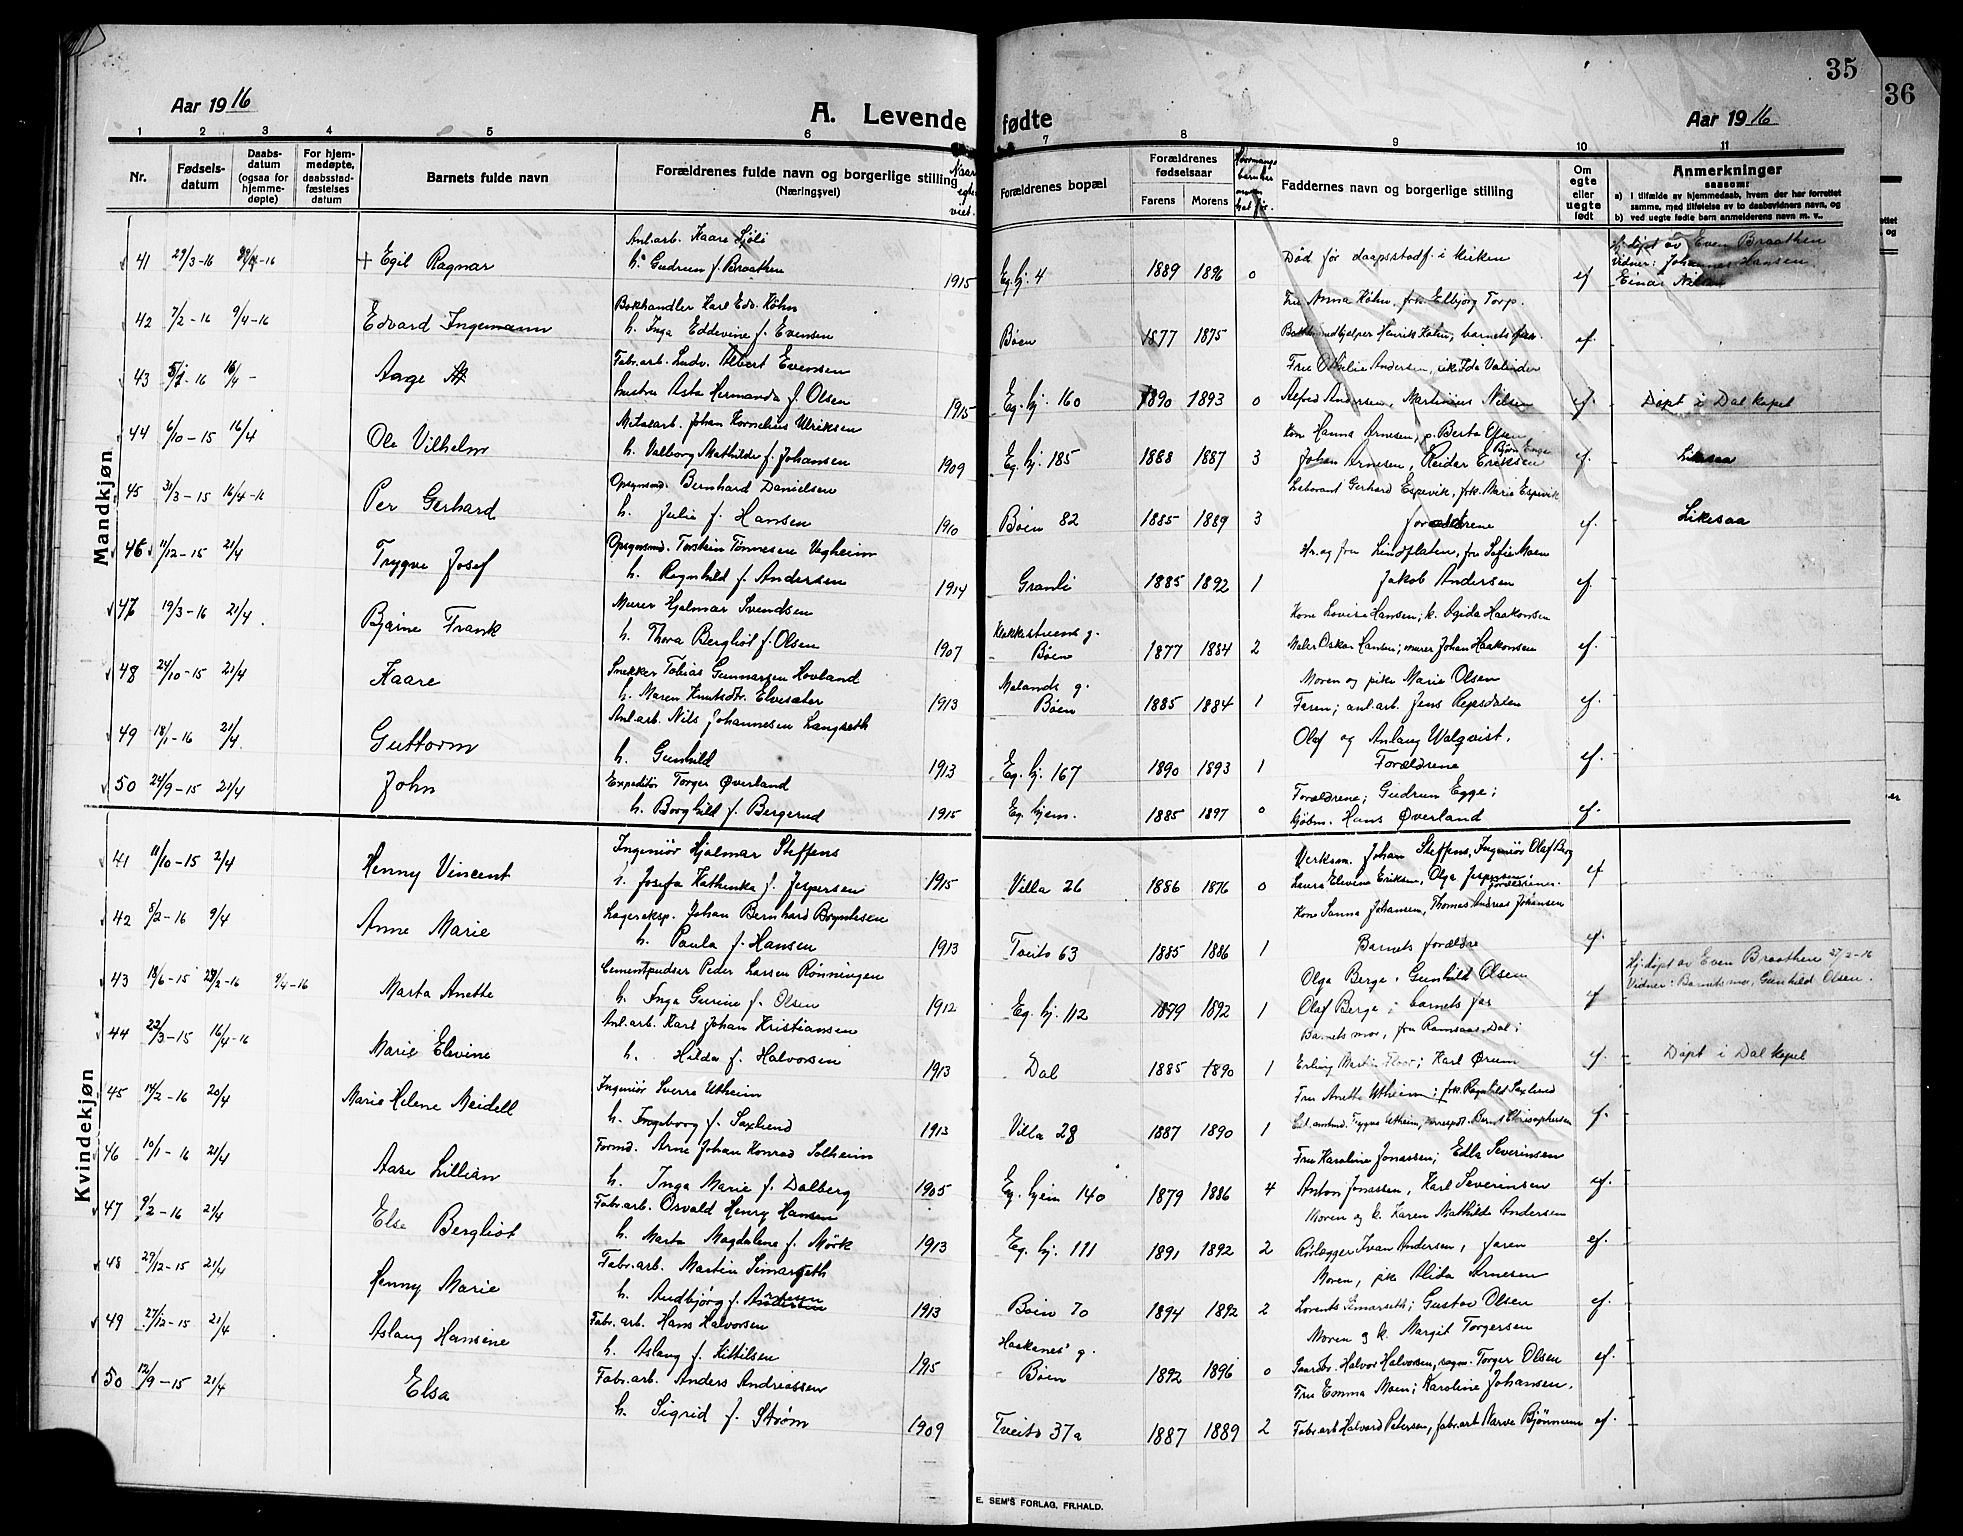 35
36
Aar 1916
A. Levende fødte
Aar 1916
1 2 3 4 5 6 7 8 9 10 11
Nr.
Fødsels-
datum
Daabs-
datum
(ogsaa for
hjemme-
døpte)
For hjem-
medøpte,
daabsstad-
fæstelses
datum
Barnets fulde navn
Forældrenes fulde navn og borgerlige stilling
(Næringsvei)
Naar
viet.
Forældrenes bopæl
Forældrenes
fødselsaar
Farens Morens
Faddernes navn og borgerlige stilling
Om
egte
eller
uegte
født
Anmerkninger
saasom:
a) i tilfælde av hjemmedaab, hvem der har forrettet
samme, med tilføielse av to daabsvidners navn, og
b) ved uegte fødte barn anmelderens navn m. v..
Mandkjøn
Anl.arb. Kaare Sjøli Hj.døpt av Even Braathen
41 22/3-16 + Egil Ragnar h. Gudrun f. Braathen 1915 Eg. hj. 4 1889 1896 0 Død før daapsstadf. i kirken ef Vidner: Johannes Hansen
Einar Nilsen
Bokhandler Karl Edv. Køhn Fru Anna Køhn, frk. Elbjørg Torp.
42 7/2-16 9/4-16 Edvard Ingemann h. Inga Eddevine f. Evensen Bøen 1877 1875 Henrik Køhn, barnets far. ef.
Fabr.arb. Ludv. Albert Evensen Fru Othelie Andersen, Ida Valinder
43 5/2-16 16/4 - Aage hustru Asta Hermanda f. Olsen 1915 Eg. hj. 160 1890 1893 0 Alfred Andersen, Martinius Nilsen ef. Døpt i Dal kapel
Metalarb. Johan Kornelius Ulriksen Kone Hanna Arnesen, p. Berta Olsen
44 6/10-15 16/4 Ole Vilhelm h. Valborg Mathilde f. Johansen 1909 Eg. hj. 185 1888 1887 3 Johan Arnesen, Reidar Eriksen ef. Likesaa
Opsynsmd. Bernhard Danielsen Laborant Gerhard Espevik, frk. Marie Espevik
45 31/3-15 16/4-16 Per Gerhard h. Julie f. Hansen 1910 Bøen 82 1885 1889 3 forældrene ef. Likesaa
Opsynsmd. Torstein Tønnesen Vegheim Hr. og fru Lindflaten, fru Sofie Moen
46 11/12-15 21/4 Trygve Josef h. Ragnhild f. Andersen 1914 Granli 1885 1892 1 Jakob Andersen ef.
Murer Hjalmar Svendsen Kone Lovise Hansen; k. Agida Haakonsen
47 19/3-16 21/4 Bjarne Frank h. Thora Bergliot f. Olsen 1907 Bøen 1877 1884 2 Maler Oskar Hansen; murer Johan Haakonsen ef.
Snekker Tobias Gunnarsen Hovland Melands g. Moren og pike Marie Olsen
48 24/10-15 21/4 Kaare h. Maren Knutsdtr. Elvesæter 1913 Bøen 1885 1884 1 Faren; anl.arb. Jens Repsdalen ef.
Anl.arb. Nils Johannesen Langseth Olaf og Anlaug Walqvist.
49 18/1-16 21/4. Guttorm h. Gunhild 1913 Eg. hj. 167 1890 1893 1 Forældrene ef.
Expeditør Torger Øverland Forældrene; Gudrun Egge;
50 24/9-15 21/4 John h. Borghild f. Bergerud 1915 Eg. hjem. 1885 1897 0 kjøbm. Hans Øverland ef.
Kvindekjøn
Ingeniør Hjalmar Steffens Verksm. Johan Steffens, Ingeniør Olaf Berg
41 11/10-15 2/4 Henny Vincent h. Josefa Kathinka f. Jespersen 1915 Villa 26 1886 1876 0 Laura Elevine Eriksen, Olga Jespersen, Forældrene. ef
Lagereksp. Johan Bernhard Kone Sanna Johansen, Thomas Andreas Johansen
42 5/2-16 9/4 Anne Marie h. Paula f. Hansen 1913 Tveito 63 1885 1886 1 Barnets forældre ef.
Cementpudser Peder Larsen Rønningen Olga Berge, Gunhild Olsen Hj.døpt av Even Braathen 27/2-16
43 18/6-15 9/4-16 Marta Anette h. Inga Gurine f. Olsen 1912 Eg. hj. 112 1879 1892 1 Olaf Berge; barnets far ef Vidner: Barnets mor, Gunhild Olsen.
Anl.arb. Karl Johan Kristiansen Barnets mor, fru Ramsaas, Dal;
44 22/3-15 16/4-16 Marie Elevine h. Hilda f. Halvorsen 1913 Dal 1885 1890 1 Erling Martin; Karl Ørum ef. Døpt i Dal kapel
Ingeniør Sverre Utheim Fru Anette Utheim; frk. Ragnhild Saxlund
45 14/2-16 20/4 Marie Helene Meidell h. Ingeborg f. Saxlund 1913 Villa 28 1887 1890 1 Trygve Utheim, Bernt Christophersen ef.
Formd. Arne Johan Konrad Solheim Fru Karoline Jonassen; Edla Severinsen
46 10/1-16 21/4 Aase Lillian h. Inga Marie f. Dalberg 1905 Eg. hjem 140 1879 1886 4 Anton Jonassen, Karl Severinsen ef.
Fabr.arb. Osvald Henry Hansen Moren og k. Karen Mathilde Andersen
47 9/2-16 21/4 Else Bergliot h. Marta Magdalene f. Mørk 1913 Eg. hj. 111 1891 1892 2 Rørlægger Ivan Andersen, faren ef.
Fabr.arb. Martin Simarseth Moren, pike Alida Arnesen
48 29/12-15 21/4 Henny Marie h. Audbjørg f. 1913 Bøen 70 1894 1892 2 Lorents Simarseth; Gustav Olsen ef.
Fabr. arb. Hans Halvorsen Haakanes' g. Moren og k. Margit Torgersen
49 27/12-15 21/4 Aslaug Hansine h. Aslaug f. Kittilsen 1915 Bøen 1892 1896 0 Gaardbr. Halvor Halvorsen, Torger Olsen ef.
Fabr.arb. Anders Andreassen Fru Emma Moen; Karoline Johansen.
50 12/9-15 21/4 Elsa h. Sigrid f. Strøm 1909 Tveito 37a 1887 1889 2 Fabr.arb Halvard Petersen, fabr.arb Narve Bjønnum ef.
E. SEM'S FORLAG, FR.HALD.